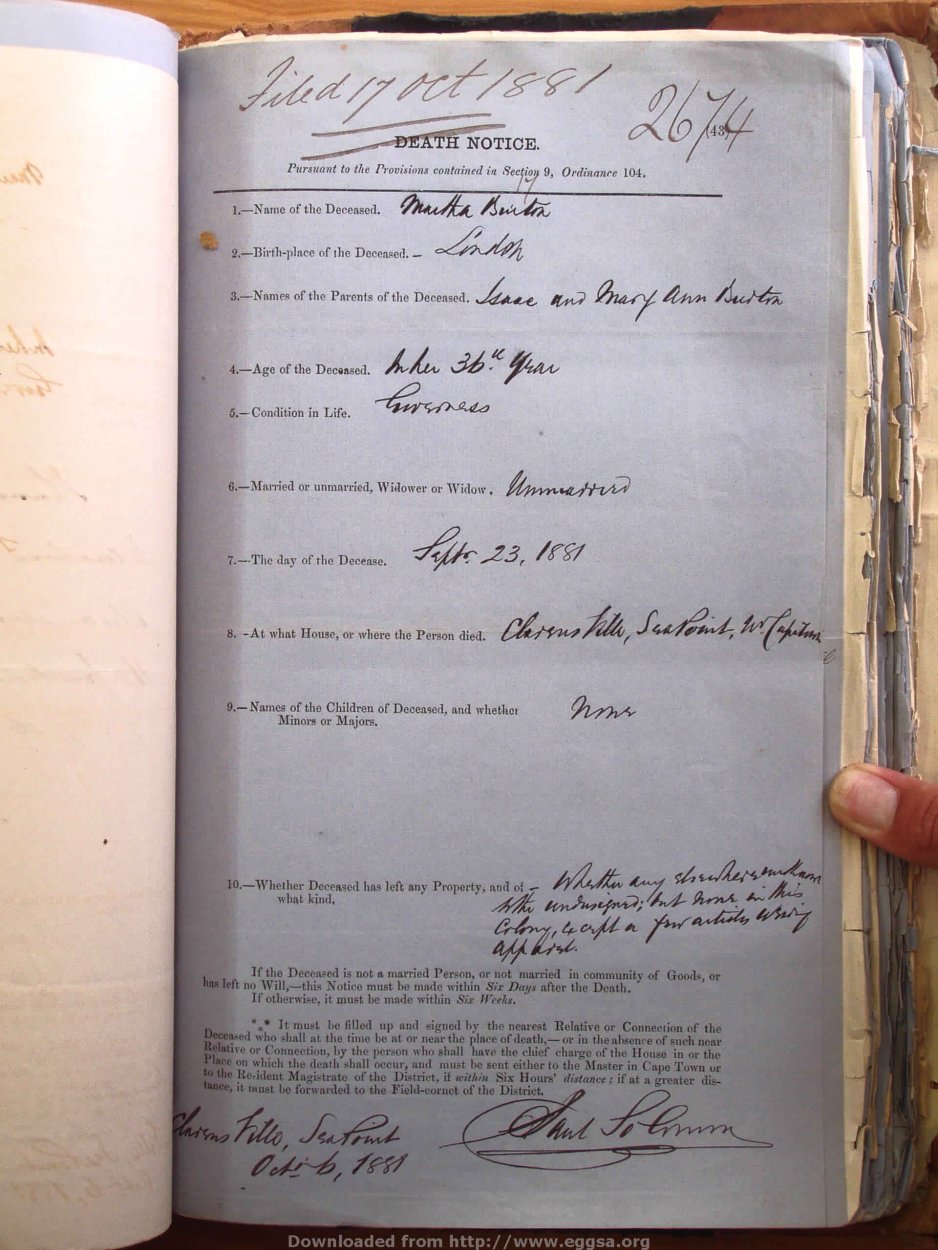 Filed 17 Oct 1881
2674
(43)
DEATH NOTICE.
Pursuant to the Provisions contained in Section 9, Ordinance 104.
1.—Name of the Deceased. Martha Burton
2.—Birth-place of the Deceased. – London
3.—Names of the Parents of the Deceased. Isaac and Mary Ann Burton
4.—Age of the Deceased. In her 36th Year
5.—Condition in Life. Governess
6.—Married or unmarried, Widower or Widow. Unmarried
7.—The day of the Decease. Septr. 23, 1881
8.—At what House, or where the Person died. Clarens Ville, Sea Point, Nr Capetown
9.—Names of the Children of Deceased, and whether None
Minors or Majors.
10.—Whether Deceased has left any Property, and of – Whether any elsewhere unknown
what kind. to the undersigned; but none in this
Colony, except a few articles wearing
apparel.
If the Deceased is not a married Person, or not married in community of Goods, or
has left no Will,—this Notice must be made within Six Days after the Death.
If otherwise, it must be made within Six Weeks.
*** It must be filled up and signed by the nearest Relative or Connection of the
Deceased who shall at the time be at or near the place of death,—or in the absence of such near
Relative or Connection, by the person who shall have the chief charge of the House in or the
Place on which the death shall occur, and must be sent either to the Master in Cape Town or
to the Resident Magistrate of the District, if within Six Hours' distance; if at a greater dis-
tance, it must be forwarded to the Field-cornet of the District.
Clarens Ville, Sea Point Saul Solomon
Octr 6, 1881
Downloaded from http://www.eggsa.org